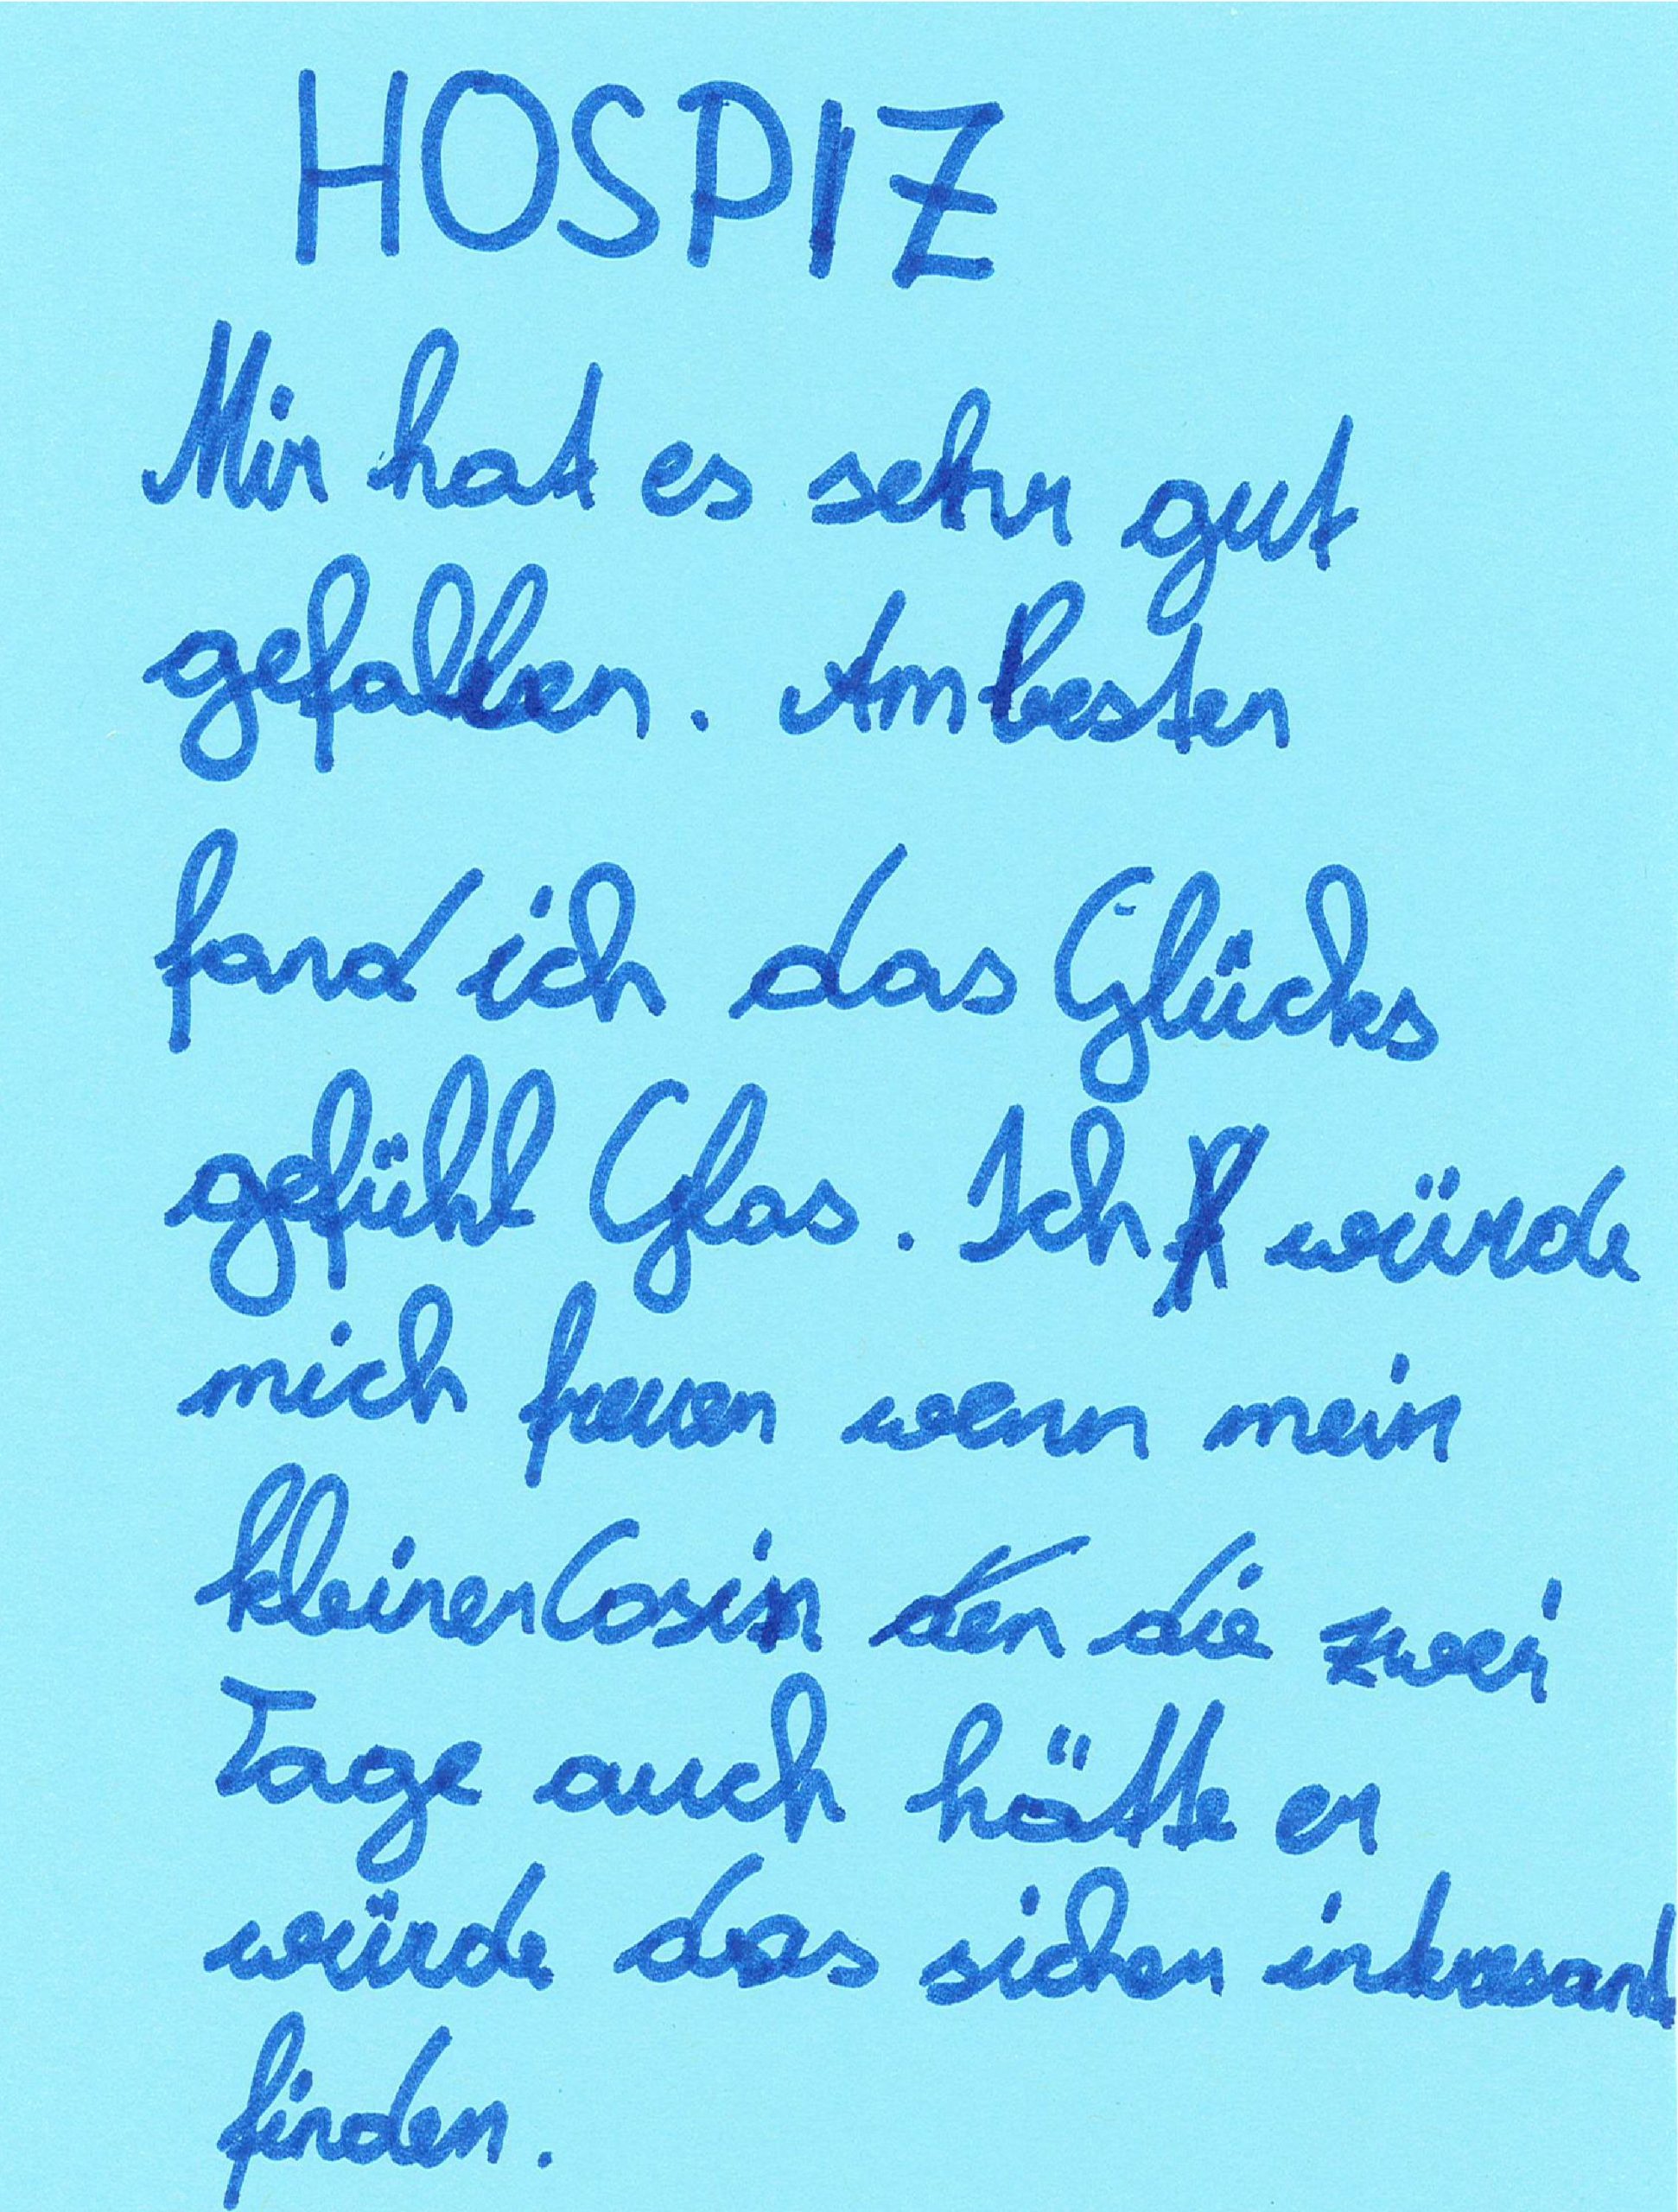 HOSPIZ
Mir hat es sehr gut
gefallen. Am besten
fand ich das Glücks
gefühl Glas. Ich würde
mich freuen wenn mein
kleiner Cosin den die zwei
Tage auch hätte er
würde das sicher interesant
finden.